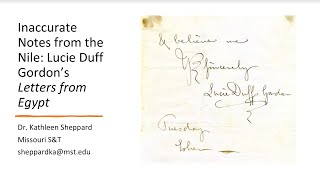 Inaccurate
Notes from the
Nile: Lucie Duff
Gordon's
Letters from
Egypt
Dr. Kathleen Sheppard
Missouri S&T
sheppardka@mst.edu
& believe me
Sincerely
Lucie Duff Gordon
Tuesday